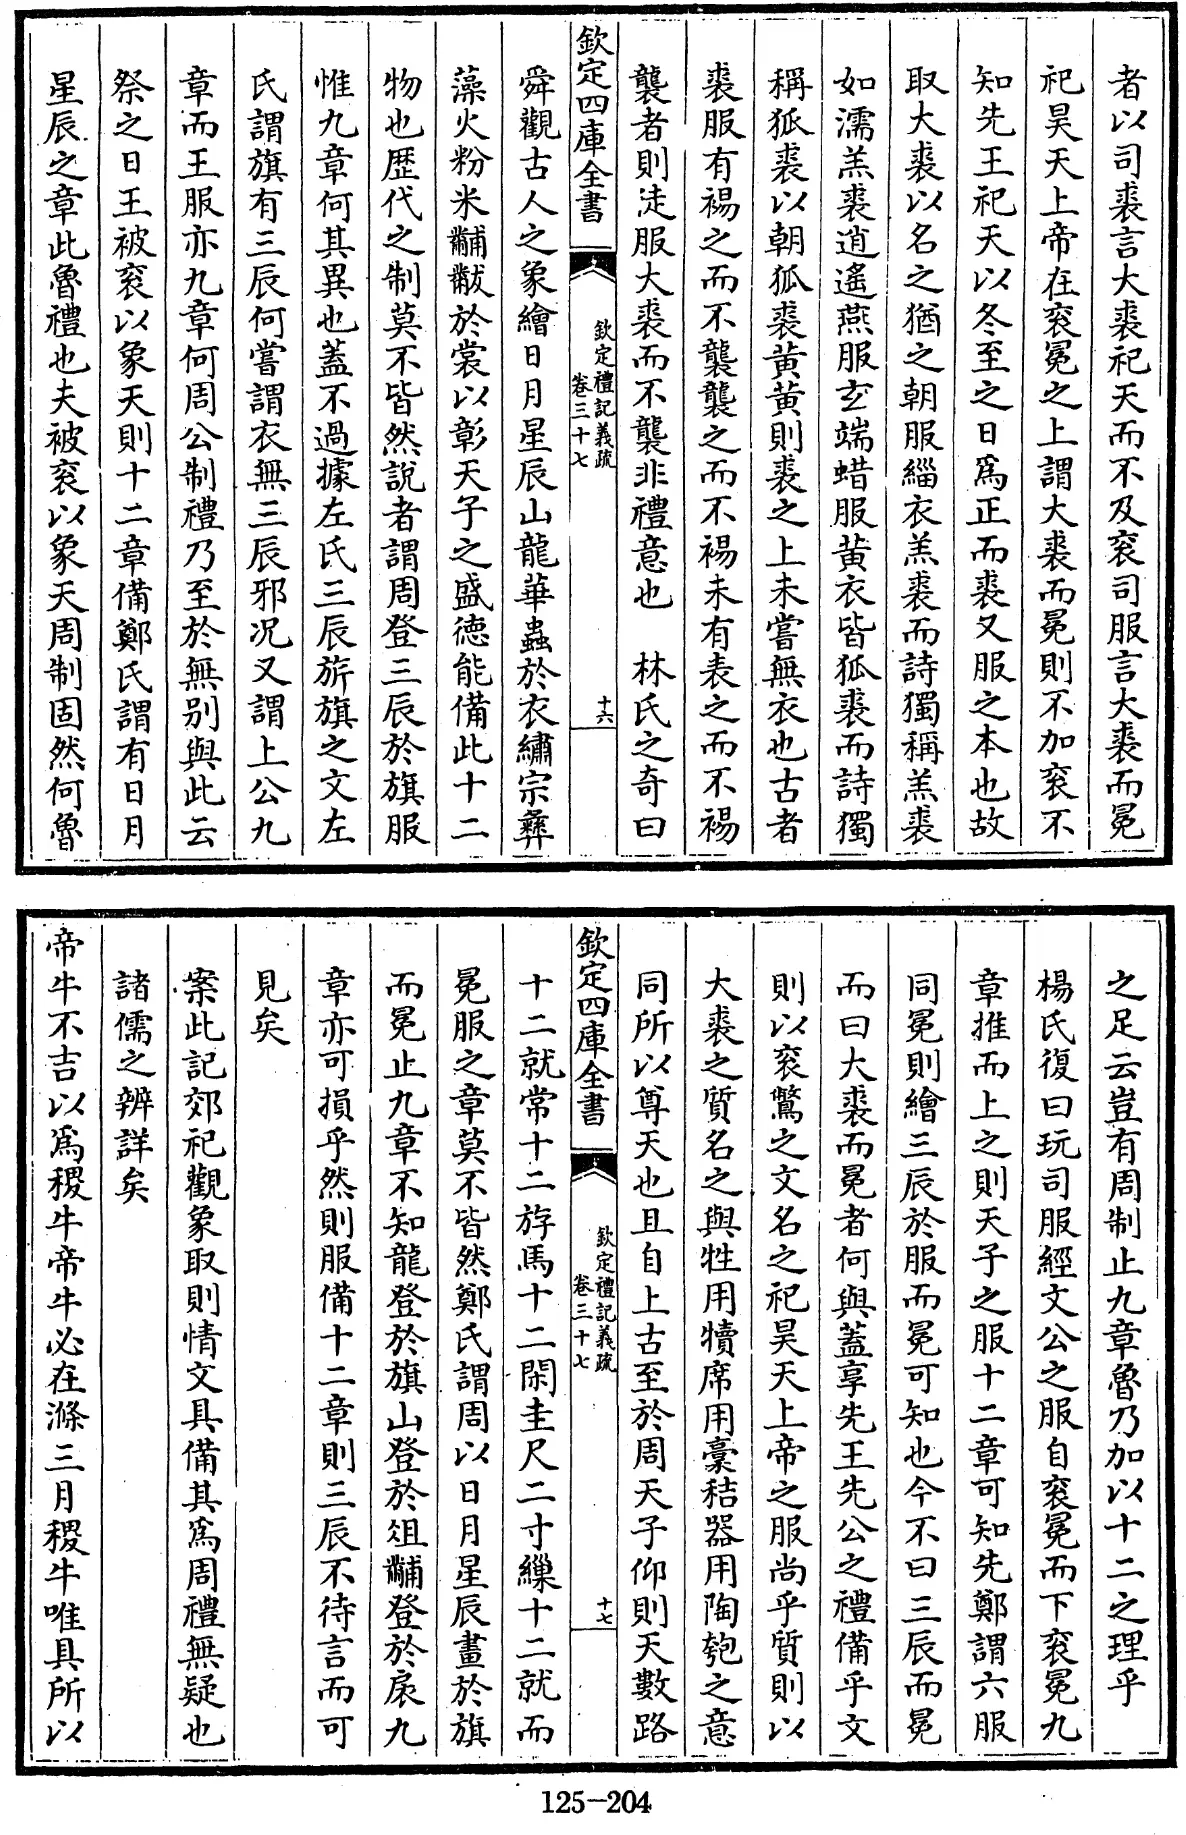 者以司裘言大裘祀天而不及衮司服言大裘而冕
祀昊天上帝在衮冕之上謂大裘而冕則不加衮不
知先王祀天以冬至之日爲正而裘又服之本也故
取大裘以名之猶之朝服緇衣羔裘而詩獨稱羔裘
如濡羔裘逍遙燕服玄端蜡服黄衣皆狐裘而詩獨
稱狐裘以朝狐裘黄黄則裘之上未嘗無衣也古者
裘服有裼之而不襲襲之而不裼未有表之而不裼
襲者則徒服大裘而不襲非禮意也　林氏之奇曰
欽定四庫全書
欽定禮記義疏
卷三十七
十六
舜觀古人之象繪日月星辰山龍華蟲於衣繡宗彝
藻火粉米黼黻於裳以彰天子之盛德能備此十二
物也歴代之制莫不皆然說者謂周登三辰於旗服
惟九章何其異也蓋不過據左氏三辰旂旗之文左
氏謂旗有三辰何嘗謂衣無三辰邪况又謂上公九
章而王服亦九章何周公制禮乃至於無别與此云
祭之日王被衮以象天則十二章備鄭氏謂有日月
星辰之章此魯禮也夫被衮以象天周制固然何魯
之足云豈有周制止九章魯乃加以十二之理乎
楊氏復曰玩司服經文公之服自衮冕而下衮冕九
章推而上之則天子之服十二章可知先鄭謂六服
同冕則繪三辰於服而冕可知也今不曰三辰而冕
而曰大裘而冕者何與蓋享先王先公之禮備乎文
則以衮鷩之文名之祀昊天上帝之服尚乎質則以
大裘之質名之與牲用犢席用藁秸器用陶匏之意
同所以尊天也且自上古至於周天子仰則天數路
欽定四庫全書
欽定禮記義疏
卷三十七
十七
十二就常十二斿馬十二閑圭尺二寸繅十二就而
冕服之章莫不皆然鄭氏謂周以日月星辰畫於旗
而冕止九章不知龍登於旗山登於俎黼登於扆九
章亦可損乎然則服備十二章則三辰不待言而可
見矣
案此記郊祀觀象取則情文具備其爲周禮無疑也
諸儒之辨詳矣
帝牛不吉以爲稷牛帝牛必在滌三月稷牛唯具所以
125-204